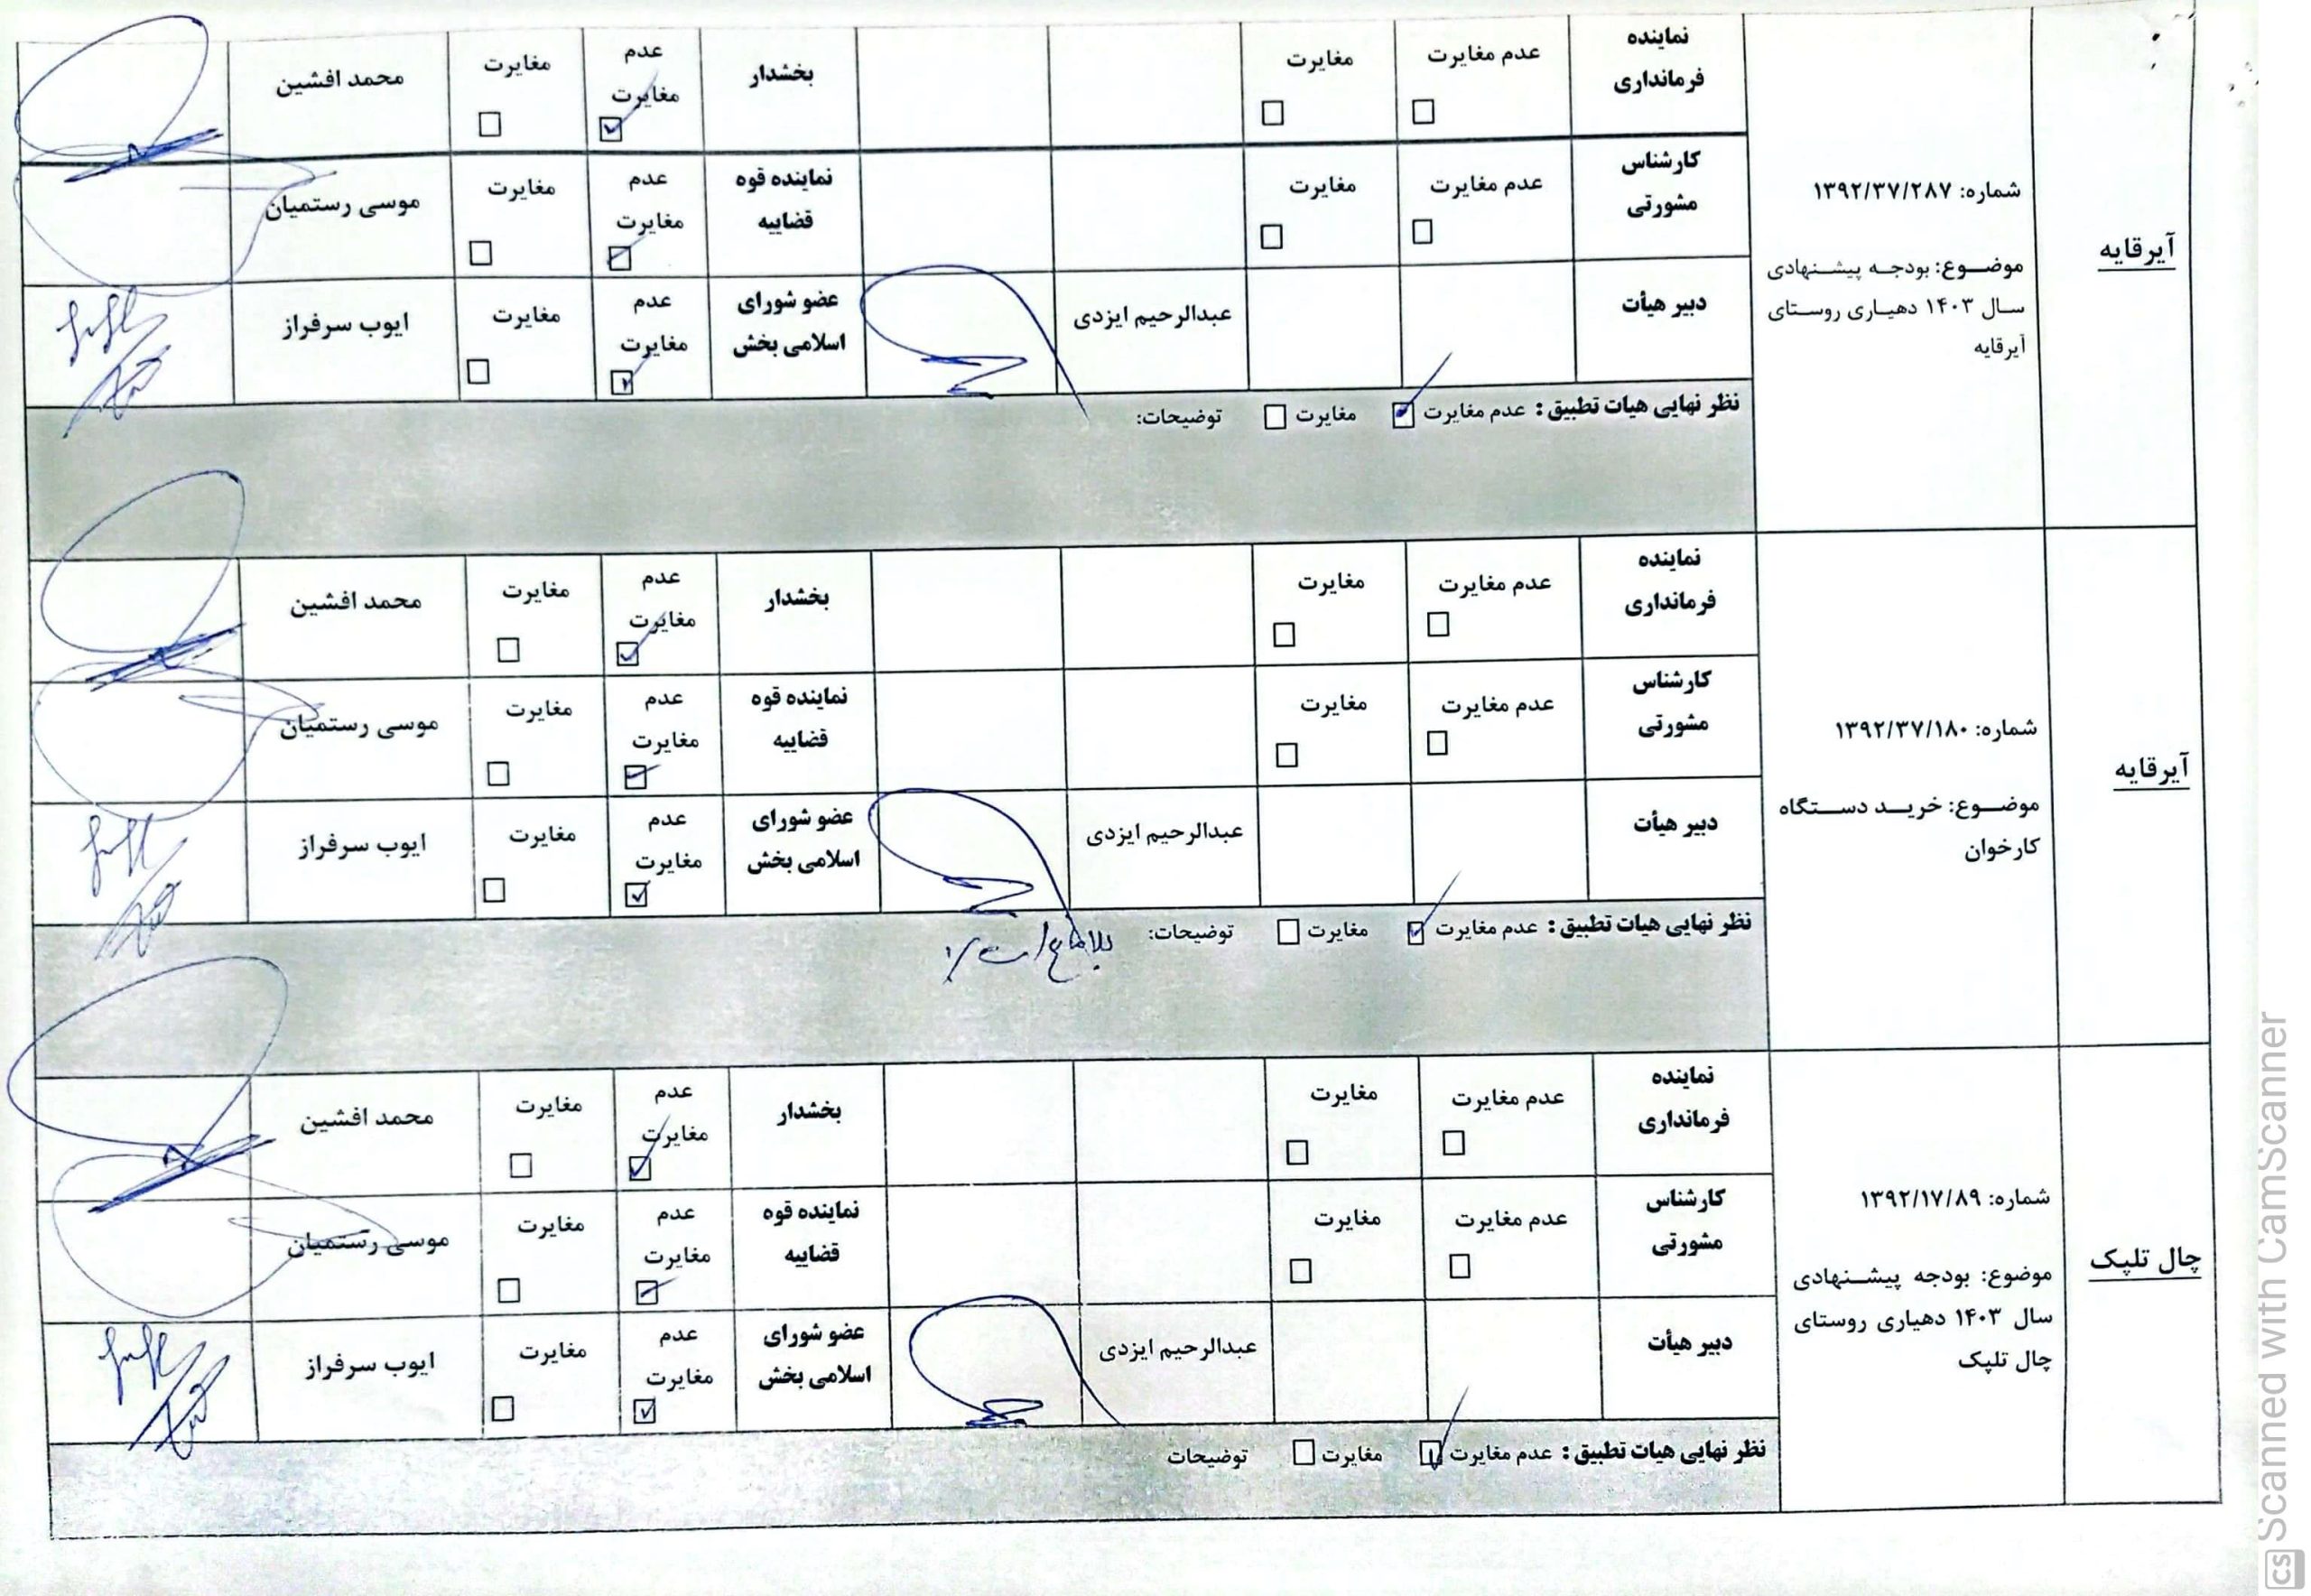 آیرقایه
شماره: ۱۳۹۲/۳۷/۲۸۷
موضوع: بودجه پیشنهادی
سال ۱۴۰۳ دهیاری روستای
آیرقایه
نماینده
فرمانداری
عدم مغایرت
مغایرت
بخشدار
عدم
مغایرت
مغایرت
محمد افشین
کارشناس
مشورتی
عدم مغایرت
مغایرت
نماینده قوه
قضاییه
عدم
مغایرت
مغایرت
موسی رستمیان
دبیر هیأت
عبدالرحیم ایزدی
عضو شورای
اسلامی بخش
عدم
مغایرت
مغایرت
ایوب سرفراز
نظر نهایی هیات تطبیق : عدم مغایرت مغایرت توضیحات:
آیرقایه
شماره: ۱۳۹۲/۳۷/۱۸۰
موضوع: خرید دستگاه
کارخوان
نماینده
فرمانداری
عدم مغایرت
مغایرت
بخشدار
عدم
مغایرت
مغایرت
محمد افشین
کارشناس
مشورتی
عدم مغایرت
مغایرت
نماینده قوه
قضاییه
عدم
مغایرت
مغایرت
موسی رستمیان
دبیر هیأت
عبدالرحیم ایزدی
عضو شورای
اسلامی بخش
عدم
مغایرت
مغایرت
ایوب سرفراز
نظر نهایی هیات تطبیق : عدم مغایرت مغایرت توضیحات: بلامانع است
چال تلپک
شماره: ۱۳۹۲/۱۷/۸۹
موضوع: بودجه پیشنهادی
سال ۱۴۰۳ دهیاری روستای
چال تلپک
نماینده
فرمانداری
عدم مغایرت
مغایرت
بخشدار
عدم
مغایرت
مغایرت
محمد افشین
کارشناس
مشورتی
عدم مغایرت
مغایرت
نماینده قوه
قضاییه
عدم
مغایرت
مغایرت
موسی رستمیان
دبیر هیأت
عبدالرحیم ایزدی
عضو شورای
اسلامی بخش
عدم
مغایرت
مغایرت
ایوب سرفراز
نظر نهایی هیات تطبیق : عدم مغایرت مغایرت توضیحات
CS Scanned with CamScanner